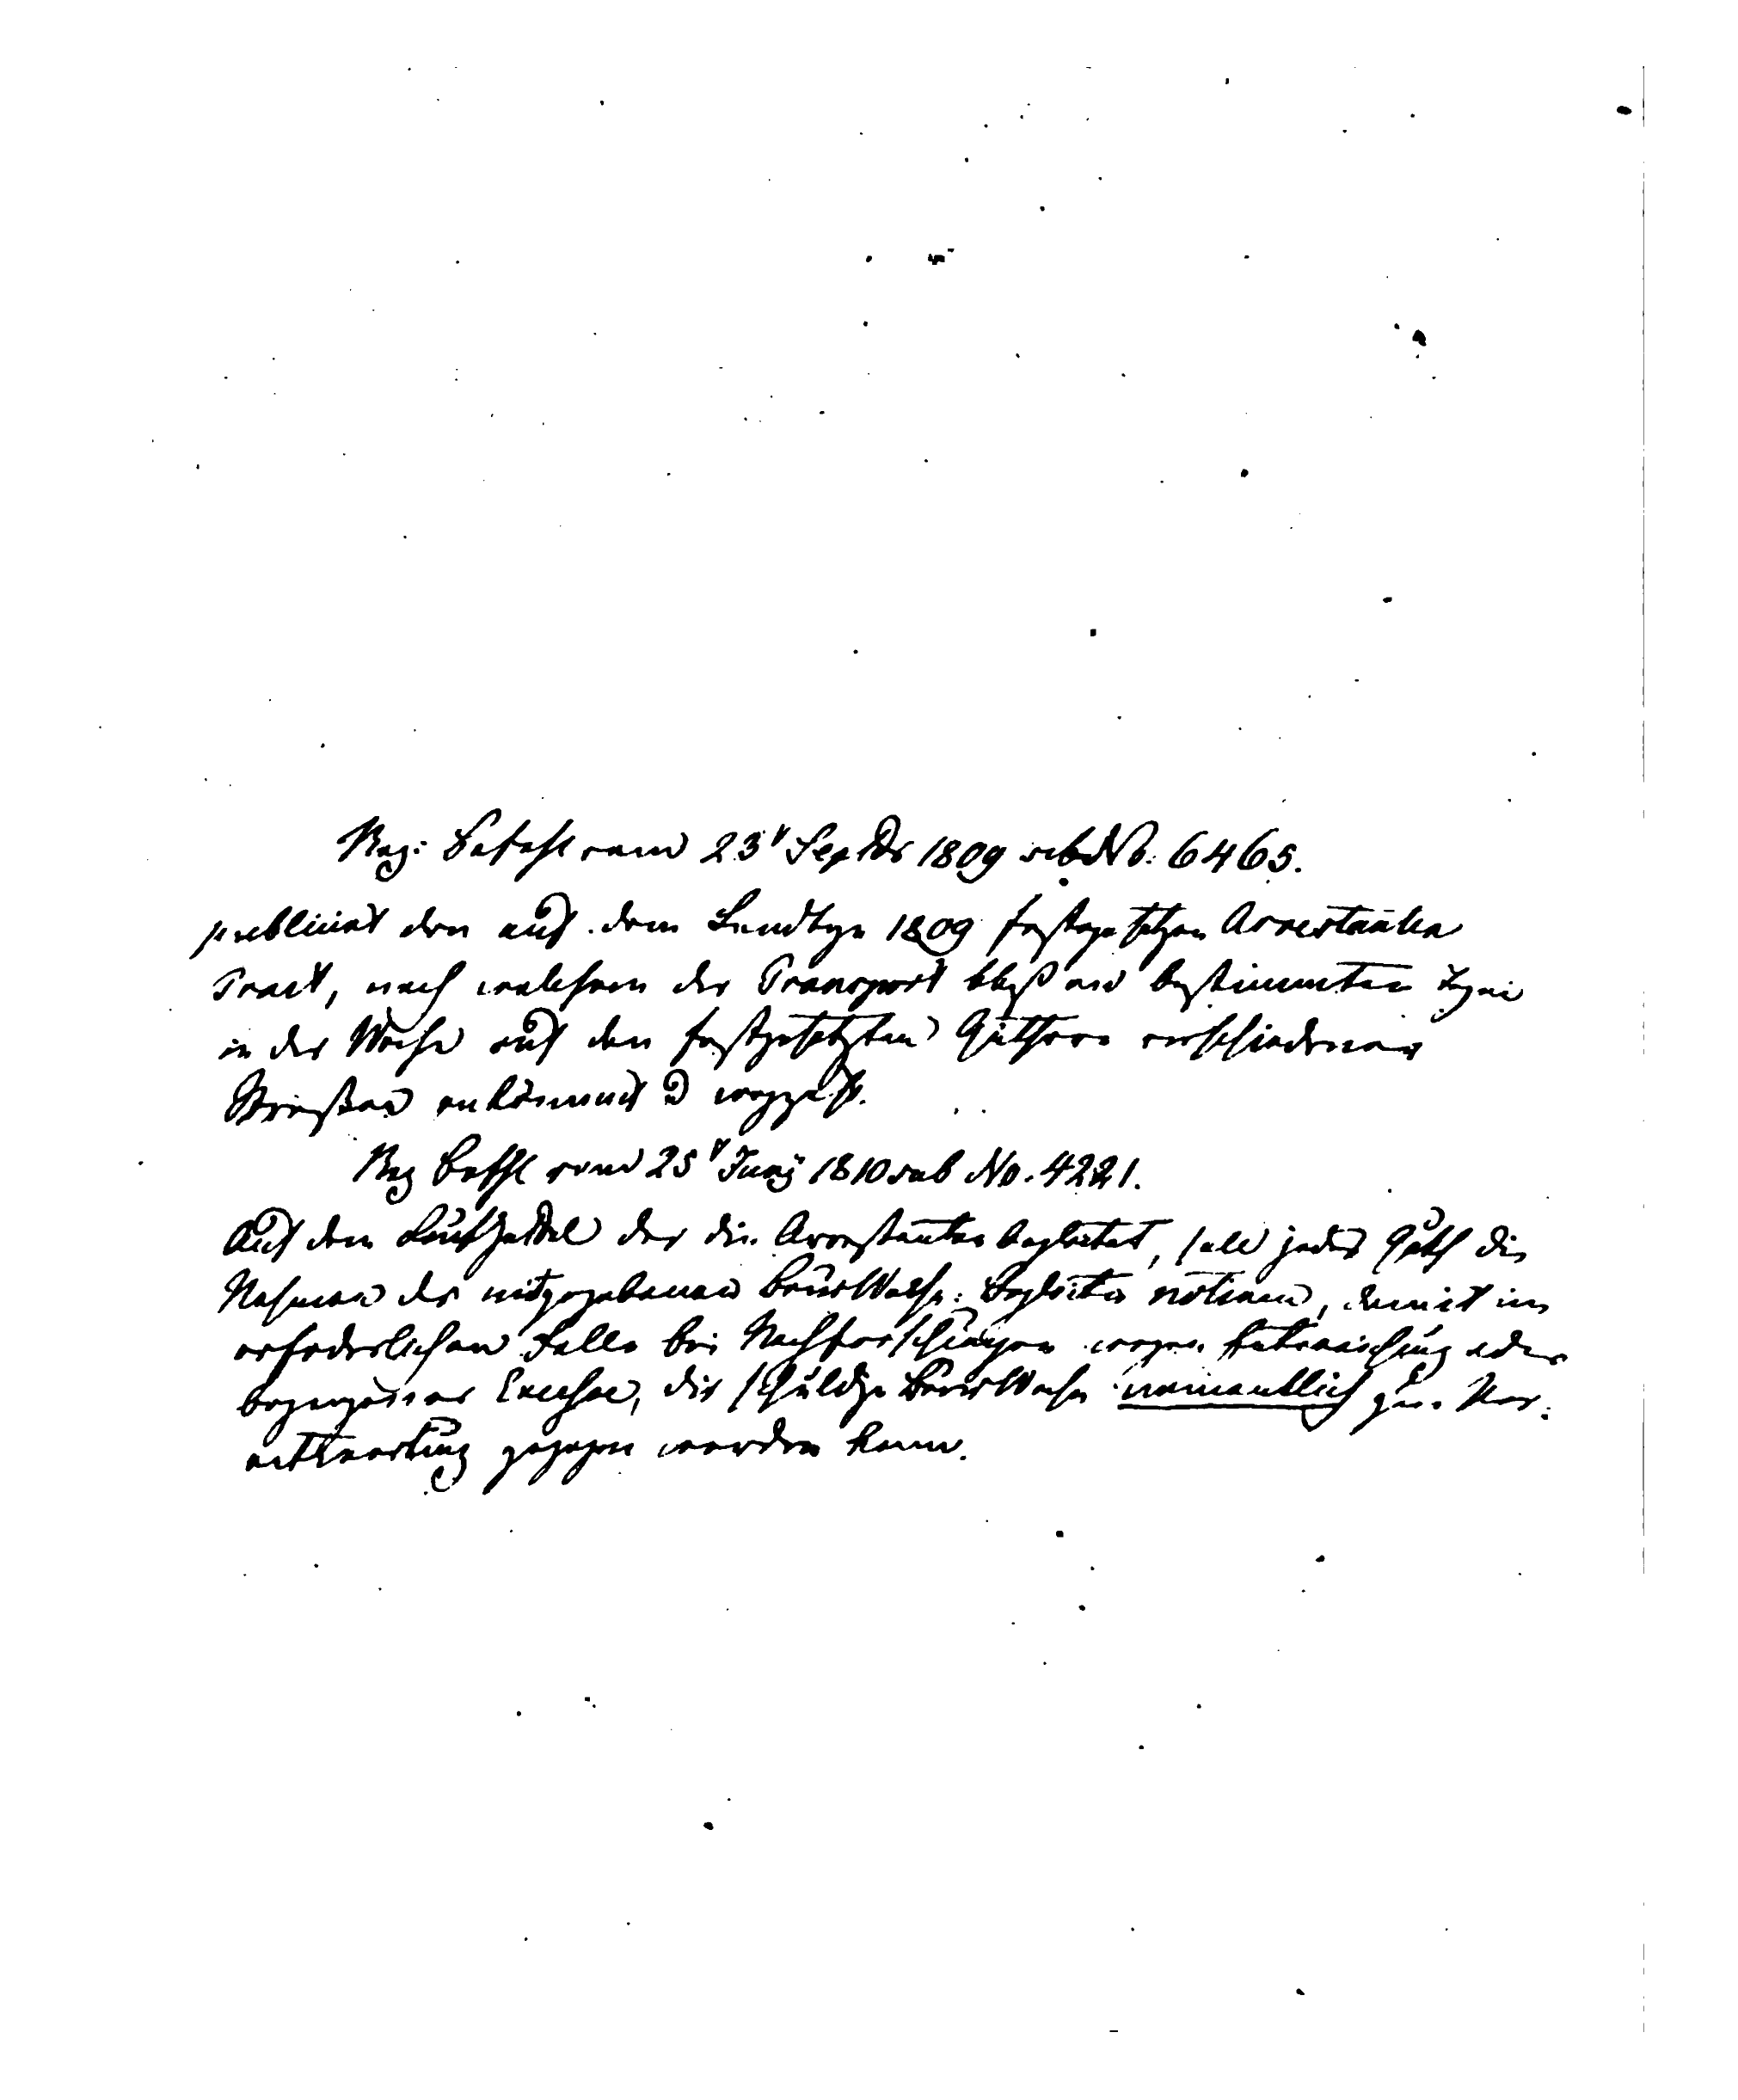 Reg: Befehl vom 23t Septbr 1809 sub No. 6465.
publicirt den auf dem Landtage 1809 festgesetzten Arrestanten
Tract, nach welchem der Transport bloß an bestimmten Tagen
in der Woche auf den festgesetzten Güthern verschiedener
Straßen ankömmt u weggeht.
Reg Befehl vom 25t Juny 1810 sub No. 4221.
Auf dem Laufzettel der die Arrestanten begleitet, soll jedes Guth die
Nahmen der mitgegebenen BaurWache: Begleiter notiren, damit im
erforderlichen Falle bei Nachforschungen wegen Entweichung oder
begangener Excesse, die schuldige BaurWache namentlich zur Ver:
antwortung gezogen werden kann.